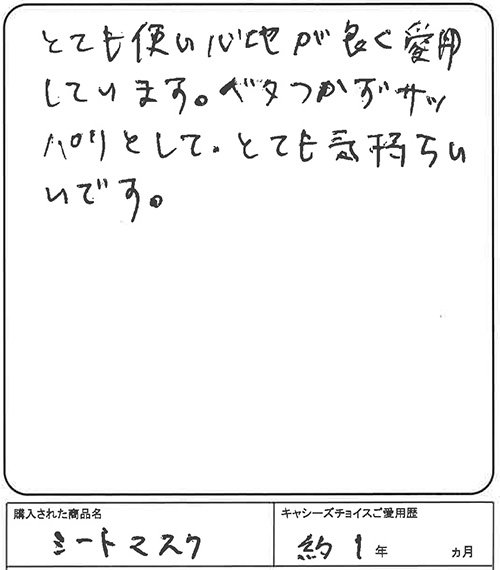 とても使い心地が良く愛用
しています。ベタつかずサッ
パリとして、とても気持ちい
いです。
購入された商品名
シートマスク
キャシーズチョイスご愛用歴
約1年 ヵ月